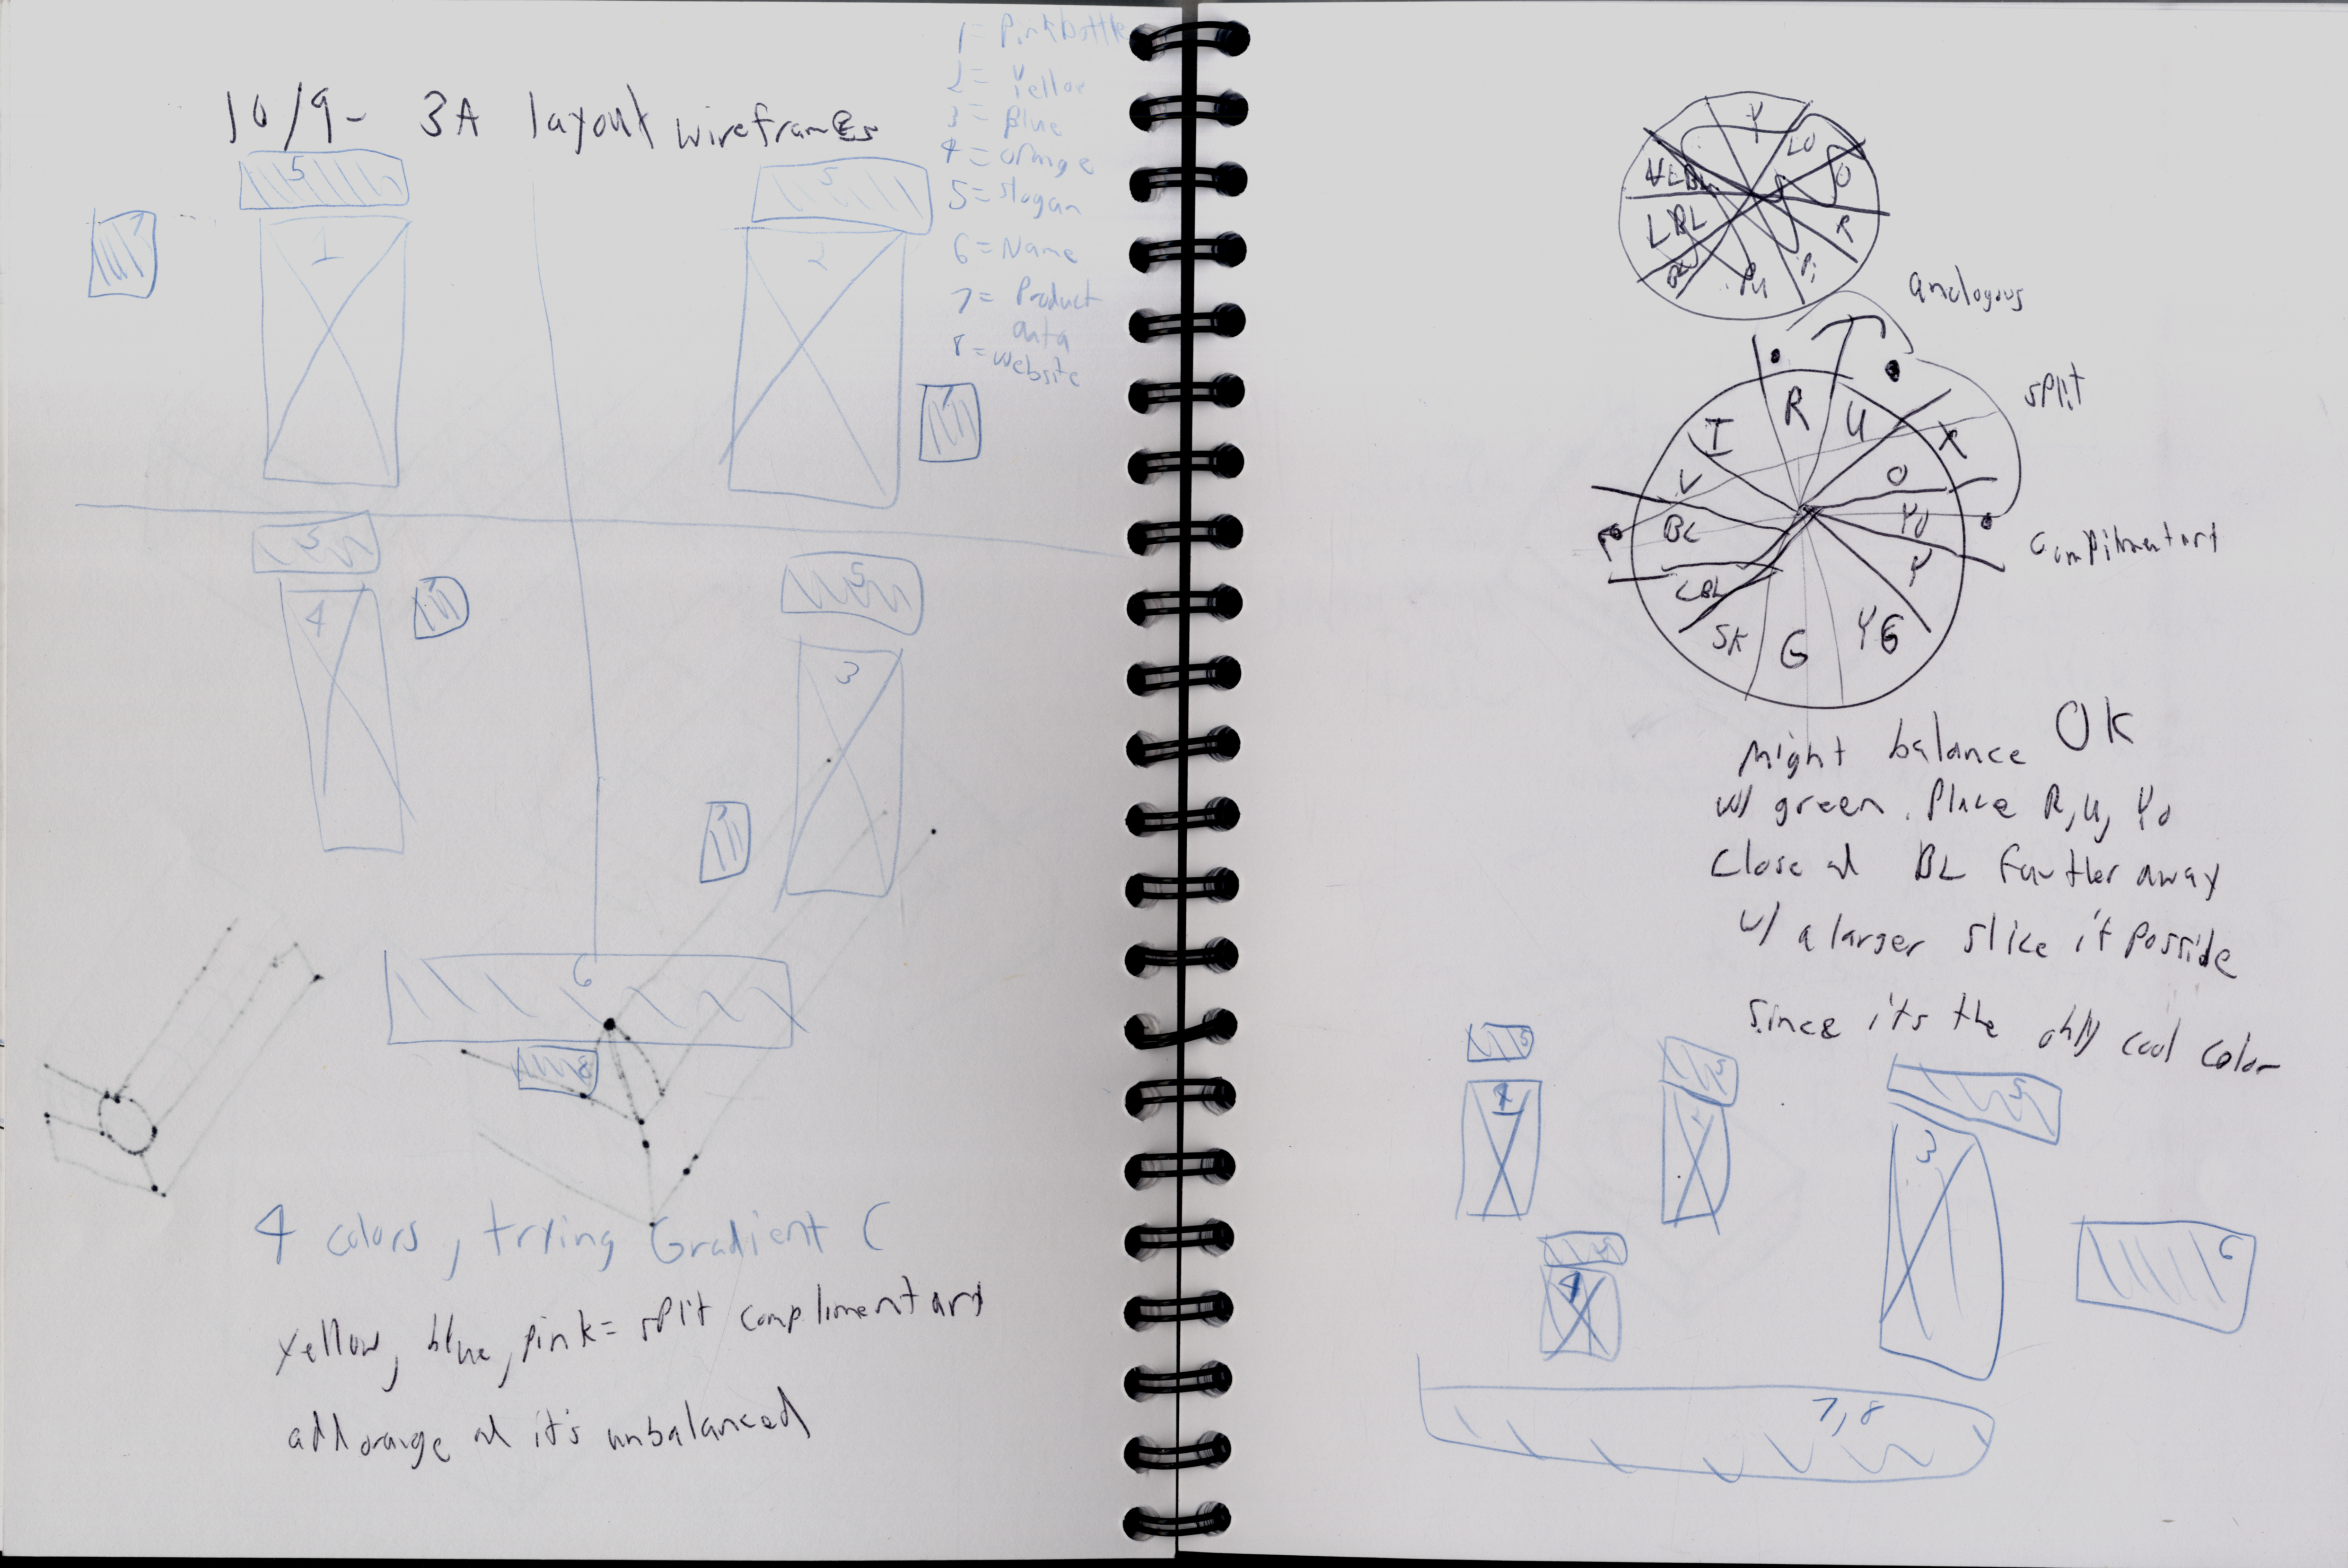 10/9- 3A layout wireframes
1 = Pinkbottle
2 = Yellow
3 = Blue
4 = orange
5 = slogan
6 = Name
7 = Product
data
8 = website
5
7
1
5
2
7
5
4
7
5
3
7
6
8
4 colors, trying Gradient C
yellow, blue, pink = split complimentary
add orange and it's unbalanced
Y
LO
O
R
Pi
Pu
LBL
analogous
split
complimentary
I
R
U
V
O
BL
YO
Y
LBL
SK
G
YG
Might balance OK
w/ green. Place R, U, YO
Close and BL further away
w/ a larger slice if possible
since its the only cool color
5
5
3
5
4
6
7,8